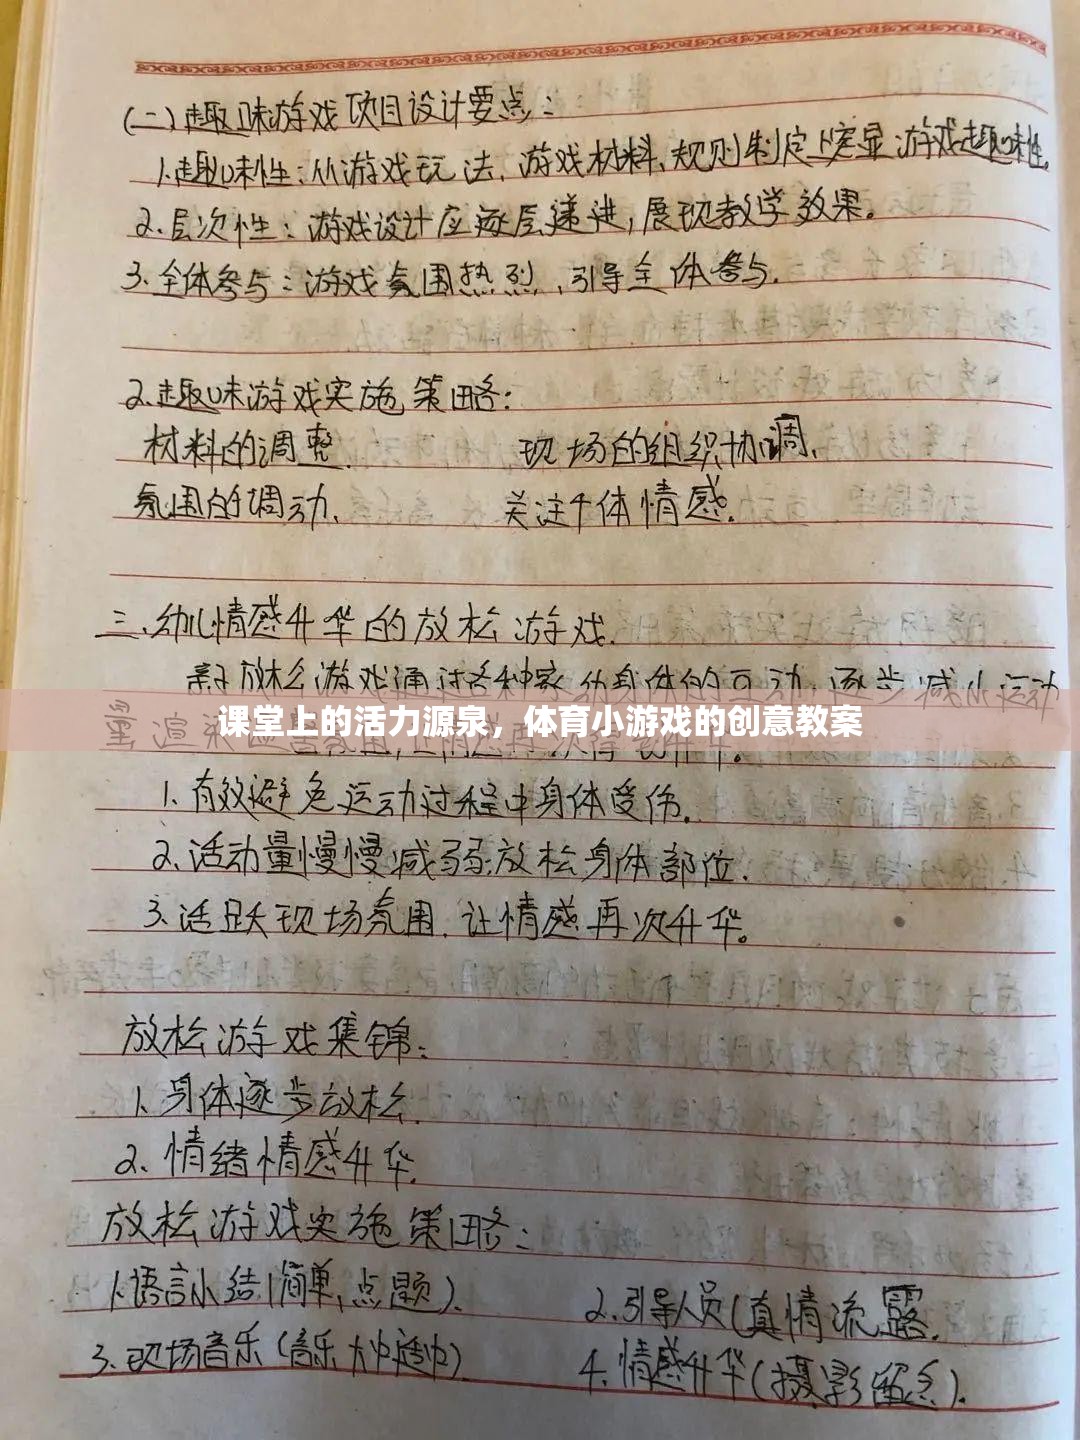 (二)趣味游戏项目设计要点:
1.趣味性:从游戏玩法、游戏材料、规则制定上突显游戏趣味性。
2.层次性:游戏设计应逐层递进,展现教学效果。
3.全体参与:游戏氛围热烈、引导全体参与.
2.趣味游戏实施策略:
材料的调整. 现场的组织协调.
氛围的调动、 关注个体情感.
三.幼儿情感升华的放松游戏.
亲子放松游戏通过各种家 身体的互动,逐步减小运动
量 渲染 氛围,
课堂上的活力源泉，体育小游戏的创意教案
1、有效避免运动过程中身体受伤.
2.活动量慢慢减弱.放松身体部位.
3.活跃现场氛围.让情感再次升华。
放松游戏集锦:
1、身体逐步放松.
2、情绪情感升华.
放松游戏实施策略:
1.语言小结(简单,点题). 2.引导人员(真情流露.
3.现场音乐(音乐 4.情感升华(摄影留念).